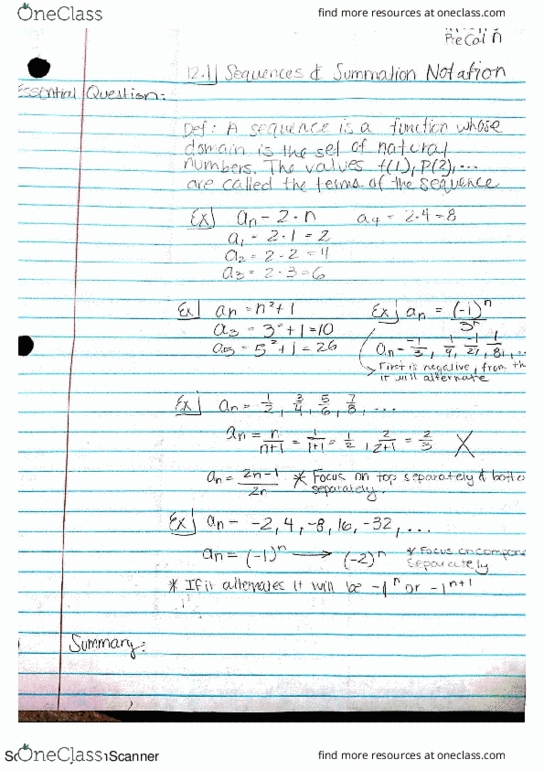 OneClass
find more resources at oneclass.com
PreCal n
12.1 Sequences & Summation Notation
Essential Question:
Def: A sequence is a function whose
domain is the set of natural
numbers. The values f(1), f(2), ...
are called the terms of the sequence
Ex] an = 2·n    a4 = 2·4 = 8
a1 = 2·1 = 2
a2 = 2·2 = 4
a3 = 2·3 = 6
Ex] an = n²+1    Ex] an = (-1)^n/3^n
a3 = 3²+1 = 10
a5 = 5²+1 = 26    an = -1/3, 1/9, -1/27, 1/81, ...
First is negative, from th
it will alternate
Ex] an = 1/2, 3/4, 5/6, 7/8, ...
an = n/n+1 = 1/1+1 = 1/2, 2/2+1 = 2/3 X
an = 2n-1/2n * Focus on top separately &
separately.
Ex] an = -2, 4, -8, 16, -32, ...
an = (-1)^n → (-2)^n * Focus on
separately
* If it alternates it will be -1^n or -1^n+1
Summary:
OneClass
Scanner
find more resources at oneclass.com